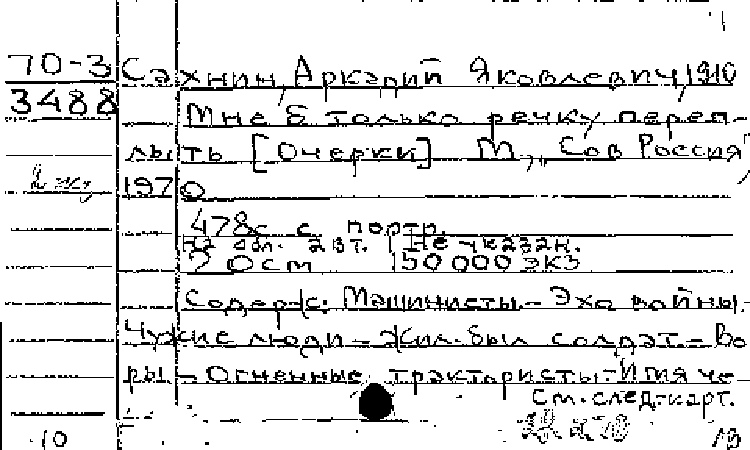 70-3
3488
2 экз
Сахнин, Аркадий Яковлевич, 1910
Мне б только речку переп-
лыть [Очерки] М, „Сов Россия"
1970
478с с портр.
На обл. авт. не указан.
20см 50000экз
Содерж: Машинисты - Эхо войны.-
Чужие люди - Жил-был солдат - Во-
ры - Огненные трактористы - И пяче
См. след. карт.
10